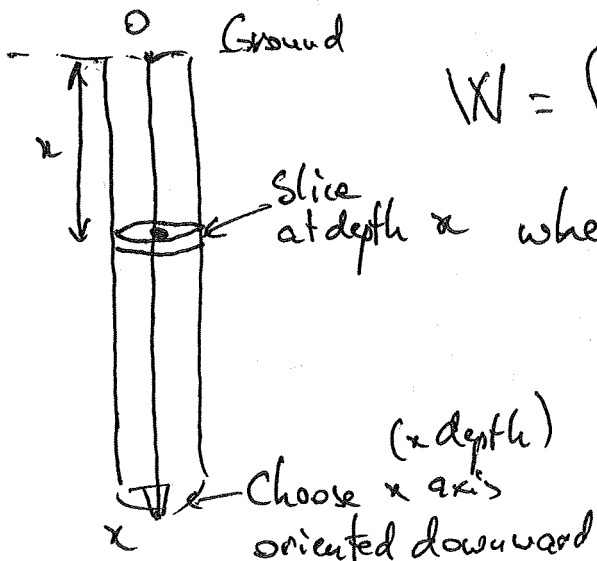 O Ground
W = (
x
Slice
at depth x whe
(x depth)
Choose x axis
x
oriented downward